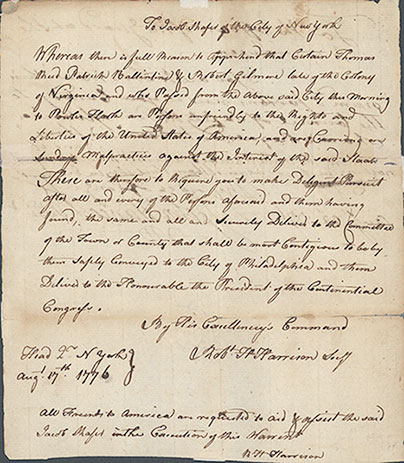 To Jacob Shafer of the City of New York
Whereas there is full Reason to Apprehend that Certain Thomas
Reed Patrick Ballantine & Robert Gilmore late of the Colony
of Virginea and who Passed from the Above said City this Morning
to Powles Hook are Persons unfriendly to the Rights and
Liberties of the United States of America, and are Carrying on
Malpractices against the Interest of the said States
These are therefore to Require you to make Deligent Pursuit
after all and every of the Persons Aforesaid and them having
found, the same and all and Securely Deliver to the Committee
of the Town or County that shall be most Contigious to be by
them Safely Conveyed to the City of Philadelphia and them
Deliver to the Honourable the President of the Continential
Congress.
By His Excellency's Command
Robt. H. Harrison Secy
Head Qrs N York
Augt 17th 1776
All Freends to America are requested to aid & assist the said
Jacob Shafer in the Execution of this Warrent
R H Harrison